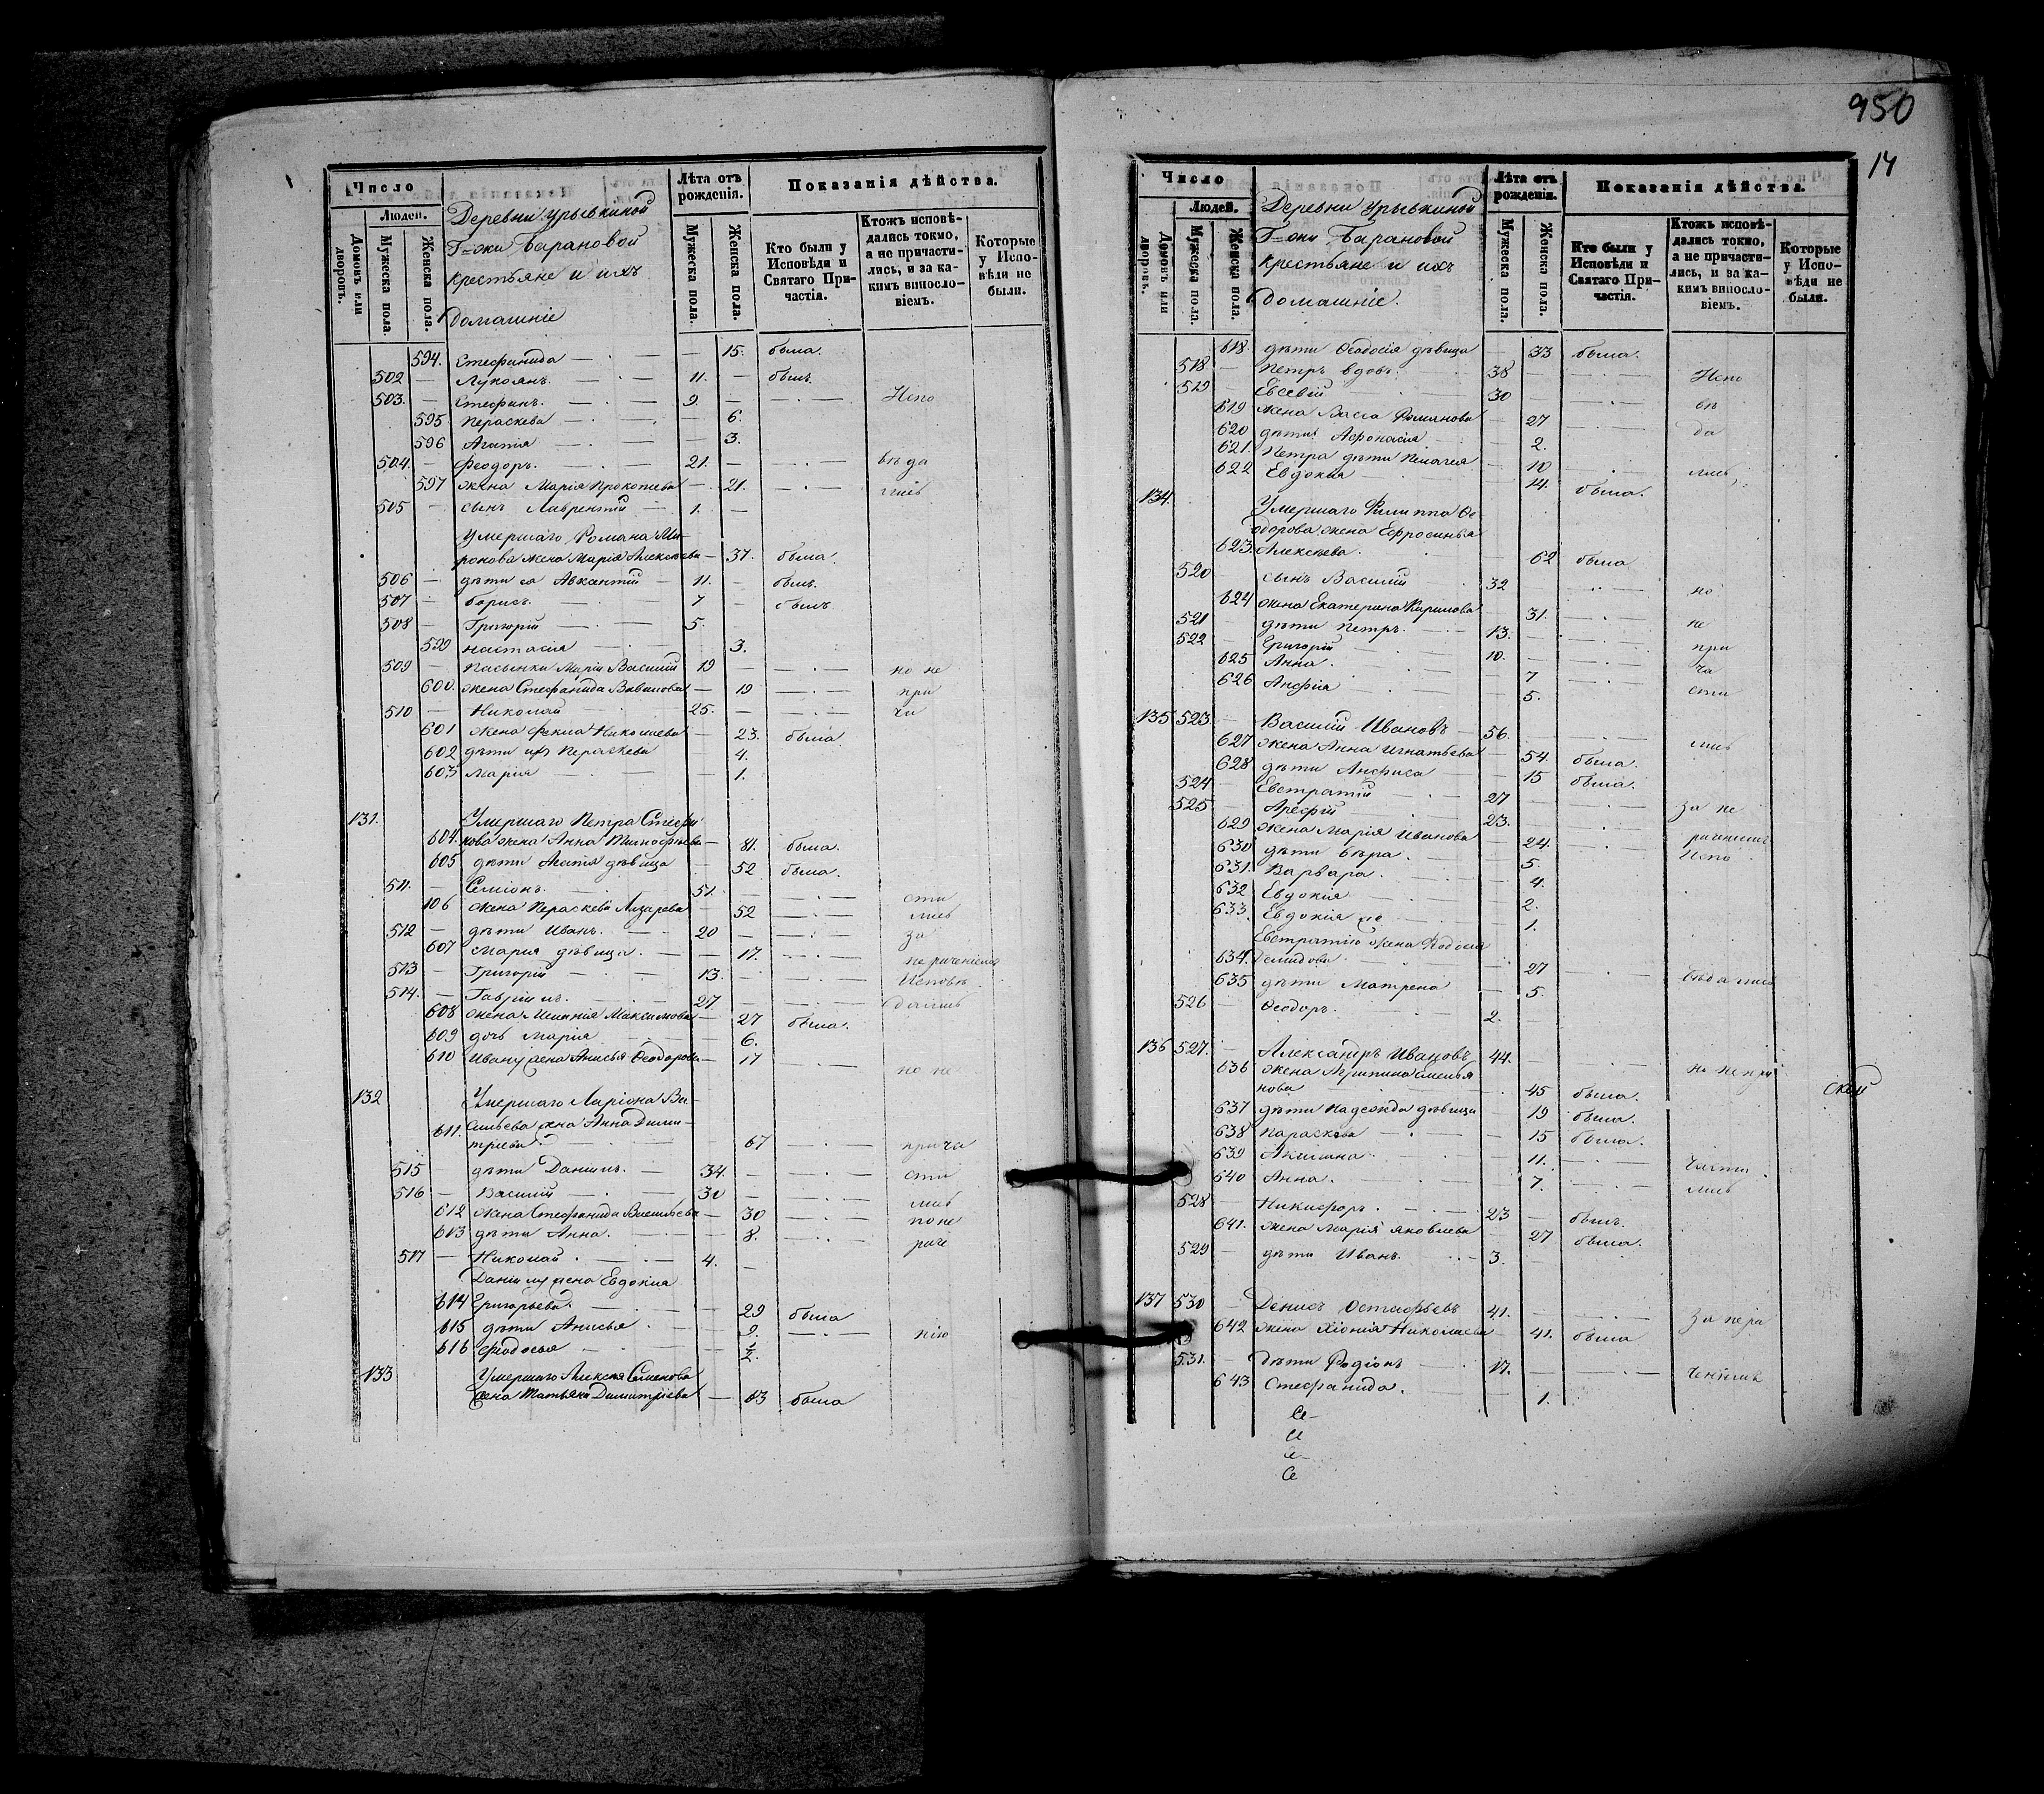 950
14
Число
Людей.
Домовъ или дворовъ.
Мужеска пола.
Женска пола.
Деревни Урывкиной
Г=жи Барановой
крестьяне и ихъ
домашніе
Лѣта отъ рожденія.
Мужеска пола.
Женска пола.
Показанія дѣйства.
Кто были у Исповѣди и Святаго Причастія.
Ктожъ исповѣдались токмо, а не причастились, и за какимъ винословіемъ.
Которые у Исповѣди не были.
594. Стефанида — 15. была.
502 — Лукьянъ. — 11. — былъ.
503. — Стефанъ. — 9. — Испо
595 Пераскева — 6.
596 Агапія — 3.
504. — Феодоръ. — 21. — вѣда
597 жена Марія Прокопьева — 21. лись
505 — сынъ Лаврентій — 1. —
Умершаго Романа Ми-
ронова жена Марія Алексѣева — 37. была.
506 — дѣти ея Авксентій — 11. — былъ.
507 — Борисъ. — 7 — былъ
508 — Григорій — 5.
599 Настасія — 3.
509 — Пасынки Маріи Василій 19 — но не
600. жена Стефанида Вавилова — 19 при
510 — Николай — 25. — ча
601 жена Фекла Николаева — 23. была.
602 дѣти ихъ Пераскева 4.
603 Марія — 1.
131. Умершаго Петра Стефа
604. нова жена Анна Тимофѣева — 81. была.
605 дѣти Агапія дѣвица 52 была.
511. — Семіонъ. 51. сти
106 жена Пераскева Лазарева — 52 лись
512 — дѣти Иванъ. — 20 — за
607 Марія дѣвица. — 17. нераченіемъ
513 — Григорій — 13. Исповѣ
514. — Гавріилъ. 27. — дались
608 жена Меланія Максимова — 27 была.
609 дочь Марія — 6.
610 Ивану жена Анисья Феодорова — 17 но не
132 Умершаго Ларіона Ва-
611. сильева жена Анна Дими-
тріева 67 прича
515 — дѣти Даніилъ. — 34. — сти
516 — Василій — 30 — лись
612 жена Стефанида Васильева — 30 по не
613 дѣти Анна. — 8. раче
517 — Николай. — 4. —
Даніилу жена Евдокія
614 Григорьева. — 29 была
615 дѣти Анисья. — 9. нію
616 Феодосья — ½.
133 Умершаго Алексѣя Семенова
жена Татьяна Димитріева — 63 была
Число
Людей.
Домовъ или дворовъ.
Мужеска пола.
Женска пола.
Деревни Урывкиной
Г=жи Барановой
крестьяне и ихъ
домашніе.
Лѣта отъ рожденія.
Мужеска пола.
Женска пола.
Показанія дѣйства.
Кто были у Исповѣди и Святаго Причастія.
Ктожъ исповѣдались токмо, а не причастились, и за какимъ винословіемъ.
Которые у Исповѣди не были.
618. дѣти Феодосія дѣвица — 33 была.
518 — Петръ вдовъ. 38 — Испо
519 — Евсевій 30 — вѣ
619 жена Васса Романова — 27 да
620 дѣти Афонасія 2.
621. Петра дѣти Пелагея — 10 лись
622 Евдокія 14. была.
134. Умершаго Филиппа Фе-
одорова жена Ефросинья
623. Алексѣева. 62 была
520 сынъ Василій 32 но
624 жена Екатерина Кирилова 31. не
521 дѣти Петръ. 13. при
522 Григорій 10. ча
625 Анна. 7
626 Анфія 5. сти
135 523 — Василій Ивановъ — 56. лись
627 жена Анна Игнатьева — 54. была.
628 дѣти Анфиса — 15 была.
524 — Евстратій — 27 за не
525 — Арефій 23. раченіемъ
629 жена Марія Иванова 24. Испо
630 дѣти Вѣра. 5.
631. Варвара. 4.
632 Евдокія 2.
633. Евдокія же 1.
Евстратію жена Федосія
634. Демидова. 27 вѣдались
635 дѣти Матрена — 5.
526 — Феодоръ. 2. —
136 527. — Александръ Ивановъ 44. но не при
636 жена Агрипина Емелья
нова — 45 была.
637 дѣти Надежда дѣвица — 19 была.
638 Параскева — 15 была.
639 Акилина 11. части
640 Анна. 7. лись
528 — Никифоръ. 23 — былъ.
641. жена Марія Яковлева — 27 была.
529 — дѣти Иванъ. 3. —
137 530 — Денисъ Остафьевъ 41. за нера
642 жена Хіонія Николаева — 41. была
531. — дѣти Родіонъ — 17. — ченіемъ
643 Стефанида. — 1.
Се-